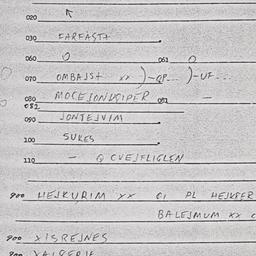 020
030 FARFASTA
060 O 061 O
070 OMBAJST xx )-QP... )-UF...
080 MOCEJONVGIPER 081 -
082
090 JONTEJVIM
100 SUKES
110 - Q CVEJFLIGLEN
900 HEJKURIM xx 01 PL HEJKPER
BALEJMUM xx
900 XISREJNES
900